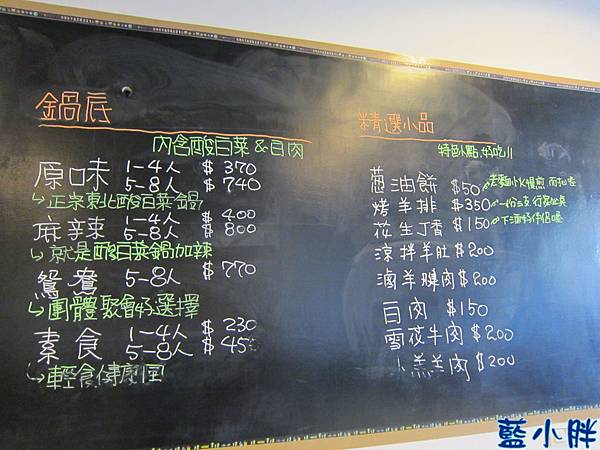 鍋底
內含酸白菜&白肉
原味 1-4人 $370
5-8人 $740
正宗東北酸白菜鍋
麻辣 1-4人 $400
5-8人 $800
就是酸白菜鍋加辣
鴛鴦 5-8人 $770
團體聚會好選擇
素食 1-4人 $230
5-8人 $45
輕食健康
精選小品
特色小點,好吃!!
蔥油餅 $50
烤羊排 $350
花生丁香 $150
涼拌羊肚 $200
滷羊腱肉 $200
白肉 $150
雪花牛肉 $200
小羔羊肉 $200
藍小胖